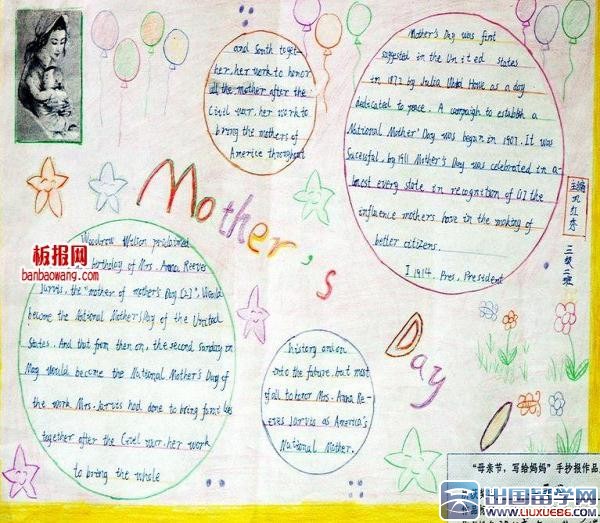 and South togeth-
her, her work to honor
all the mother after the
Civil war, her work to
bring the mothers of
Americe throughout
Mother's Day was first
suggested in the United states
in 1872 by Julia Ward Howe as a day
dedicated to peace. A campaign to establish a
National Mother' Day was began in 1907. It was
Sucessful, by 1911 Mother's Day was celebrated in a-
lmost every state in recognition of the
influence mothers have in the making of
better citizens.
I 1914, Pres, President
主编
巩红亭
三级二班
Mother's
Day
Woodrow Welson proclaimed
birthday of Mrs. Anna Reeves
Jarvis, the "mother of mother's Day", Would
become the National Mother's Day of the United
States. And that from then on, the second sunday in
May Would become the National Mother's Day of
the work Mrs. Jarvis had done to bring families
together after the Civel war. her work
to bring the whole
history and on
into the future, but most
of all to honor Mrs. Anna Re-
eves Jarvis as America's
National Mother.
板报网
banbaowang.com
"母亲节，写给妈妈"手抄报作品
出国留学网
WWW.LIUXUE86.COM